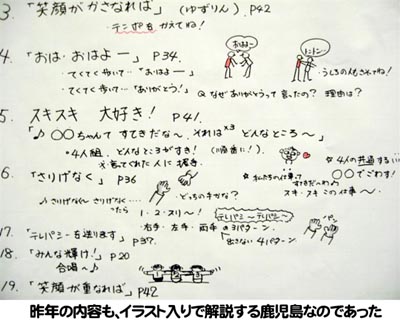 3. 「笑顔がかさなれば」(ゆずりん) P42
・テンポをかえてね!
4. 「おは・おはよー」 P34.
・てくてく歩いて…"おはよー"
・てくてく歩いて…"ありがとう!" Q なぜありがとうって言ったの? 理由は?
おはよー
・うしろの人もさわってね!
5. スキスキ 大好き! P41.
「♪ ○○ちゃんてすてきだな〜、それは×3 どんなところ〜」
・4人組、どんなところがすき!(順番に!).
・言ってくれた人に握手
6. 「さりげなく」 P36
※ 私たちの仕事って すてきだへわ♪ スキ・スキ この仕事〜
※ 4人の共通する… ○○でごわす!
♪ さりげなく〜 さりげなく… …たら
どっちのキがな?
1・2・スリー!
・右手・左手・両手の3パターン
出さない 4パターン
17. 「テレパシーを送ります」 P37.
テレパシ〜テレパシ〜
パン
18. 「みんな輝け!」 P20
合唱〜♪
19. 「笑顔が重なれば」 P42
昨年の内容も、イラスト入りで解説する鹿児島なのであった